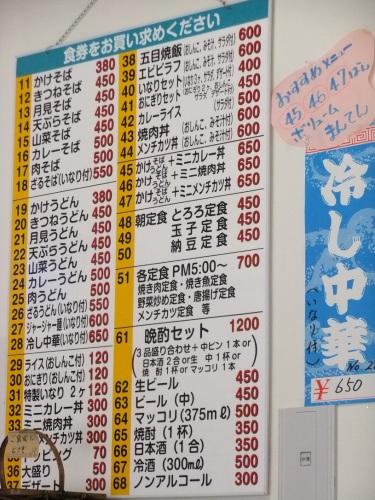 食券をお買い求めください
11 かけそば 380
12 きつねそば 450
13 月見そば 450
14 天ぷらそば 450
15 山菜そば 450
16 カレーそば 500
17 肉そば 500
18 ざるそば(いなり付) 550
19 かけうどん 380
20 きつねうどん 450
21 月見うどん 450
22 天ぷらうどん 450
23 山菜うどん 450
24 カレーうどん 500
25 肉うどん 500
26 ざるうどん(いなり付) 550
27 ジャージャー麺(いなり付) 600
28 冷し中華(いなり付) 650
29 ライス(おしんこ付) 120
30 おにぎり(おしんこ付) 120
31 特製いなり 2ヶ 120
32 ミニカレー丼 300
33 ミニ焼肉丼 300
メンチカツ丼 300
トッピング 70
36 大盛り 50
37 デザート 300
38 五目焼飯(おしんこ、みそ汁、サラダ付) 600
39 エビピラフ 600
40 いなりセット 400
41 おにぎりセット 400
42 カレーライス 500
43 焼肉丼(おしんこ、みそ汁付) 600
44 メンチカツ丼(おしんこ、みそ汁付) 600
45 かけそばうどん+ミニカレー丼 650
46 かけそばうどん+ミニ焼肉丼 650
47 かけそばうどん+ミニメンチカツ丼 650
48 朝定食 とろろ定食 450
49 玉子定食 450
50 納豆定食 450
51 各定食 PM5:00〜 700
焼肉定食・焼魚定食
野菜炒め定食・唐揚げ定食
メンチカツ定食 等
61 晩酌セット 1200
3品盛り合わせ+中ビン1本or
日本酒2合or生 中1杯or
焼酎1杯or マッコリ1本
62 生ビール 450
63 ビール(中) 450
64 マッコリ(375mℓ) 500
65 焼酎(1杯) 350
66 日本酒(1合) 350
67 冷酒(300mℓ) 500
68 ノンアルコール 300
おすすめメニュー
45 46 47は
ボリューム
まんてん
冷し中華
(いなり付)
No 28
¥650